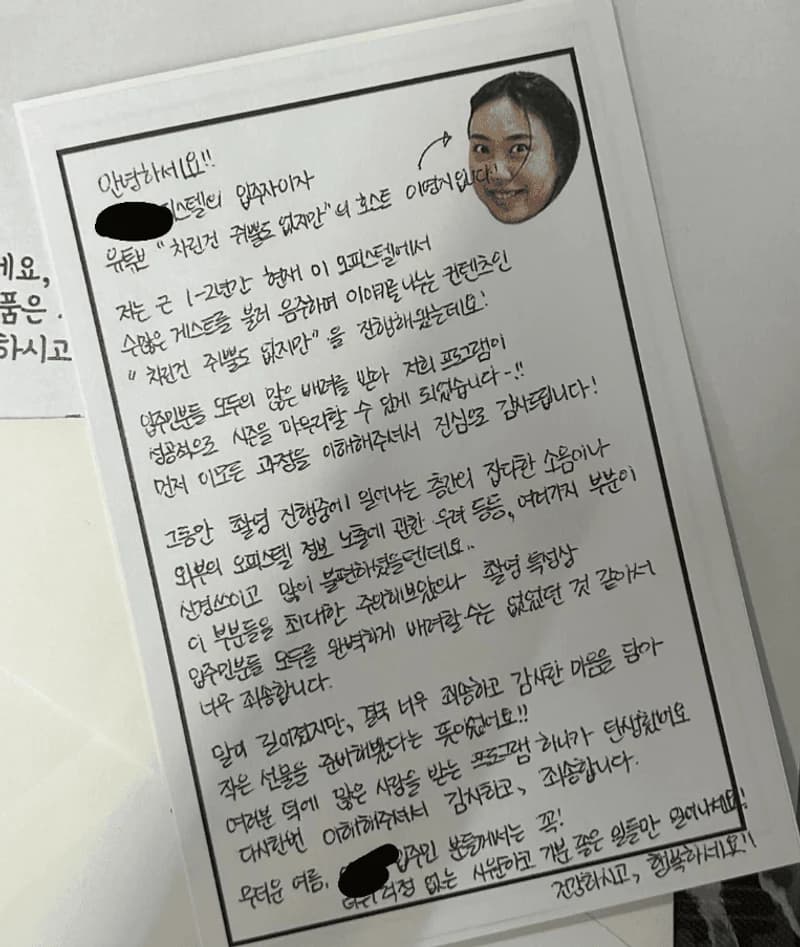 안녕하세요!!
피스텔의 입주자이자
유튜브 "차린건 쥐뿔도 없지만"의 호스트 이영지입니다!
저는 근 1-2년간 현재 이 오피스텔에서
수많은 게스트를 불러 음주하며 이야기를 나누는 컨텐츠인
"차린건 쥐뿔도 없지만"을 진행해왔는데요!
입주민분들 모두의 많은 배려를 받아 저희 프로그램이
성공적으로 시즌을 마무리할 수 있게 되었습니다-!!
먼저 이모든 과정을 이해해주셔서 진심으로 감사드립니다!
그동안 촬영 진행중에 일어나는 층간의 잡다한 소음이나
외부의 오피스텔 정보 노출에 관한 우려 등등, 여러가지 부분이
신경쓰이고 많이 불편하셨을텐데요..
이 부분들을 최대한 주의해보았으나 촬영 특성상
입주민분들 모두를 완벽하게 배려할 수는 없었던 것 같아서
너무 죄송합니다.
말이 길어졌지만, 결국 너무 죄송하고 감사한 마음을 담아
작은 선물을 준비해봤다는 뜻이었어요!!
여러분 덕에 많은 사랑을 받는 프로그램 하나가 탄생했어요
다시한번 이해해주셔서 감사하고, 죄송합니다.
무더운 여름, 입주민 분들께서는 꼭!
더위 걱정 없는 시원하고 기분 좋은 일들만 일어나세요!
건강하시고, 행복하세요!!
세요,
품은
하시고